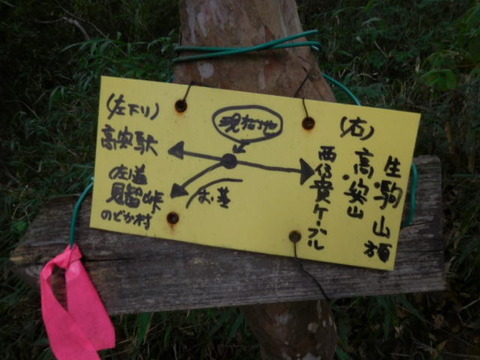 (左下り)
高安駅
左道
見留峠
のどか村
現在地
お墓
(右)
生駒山方面
高安山
西信貴ケーブル